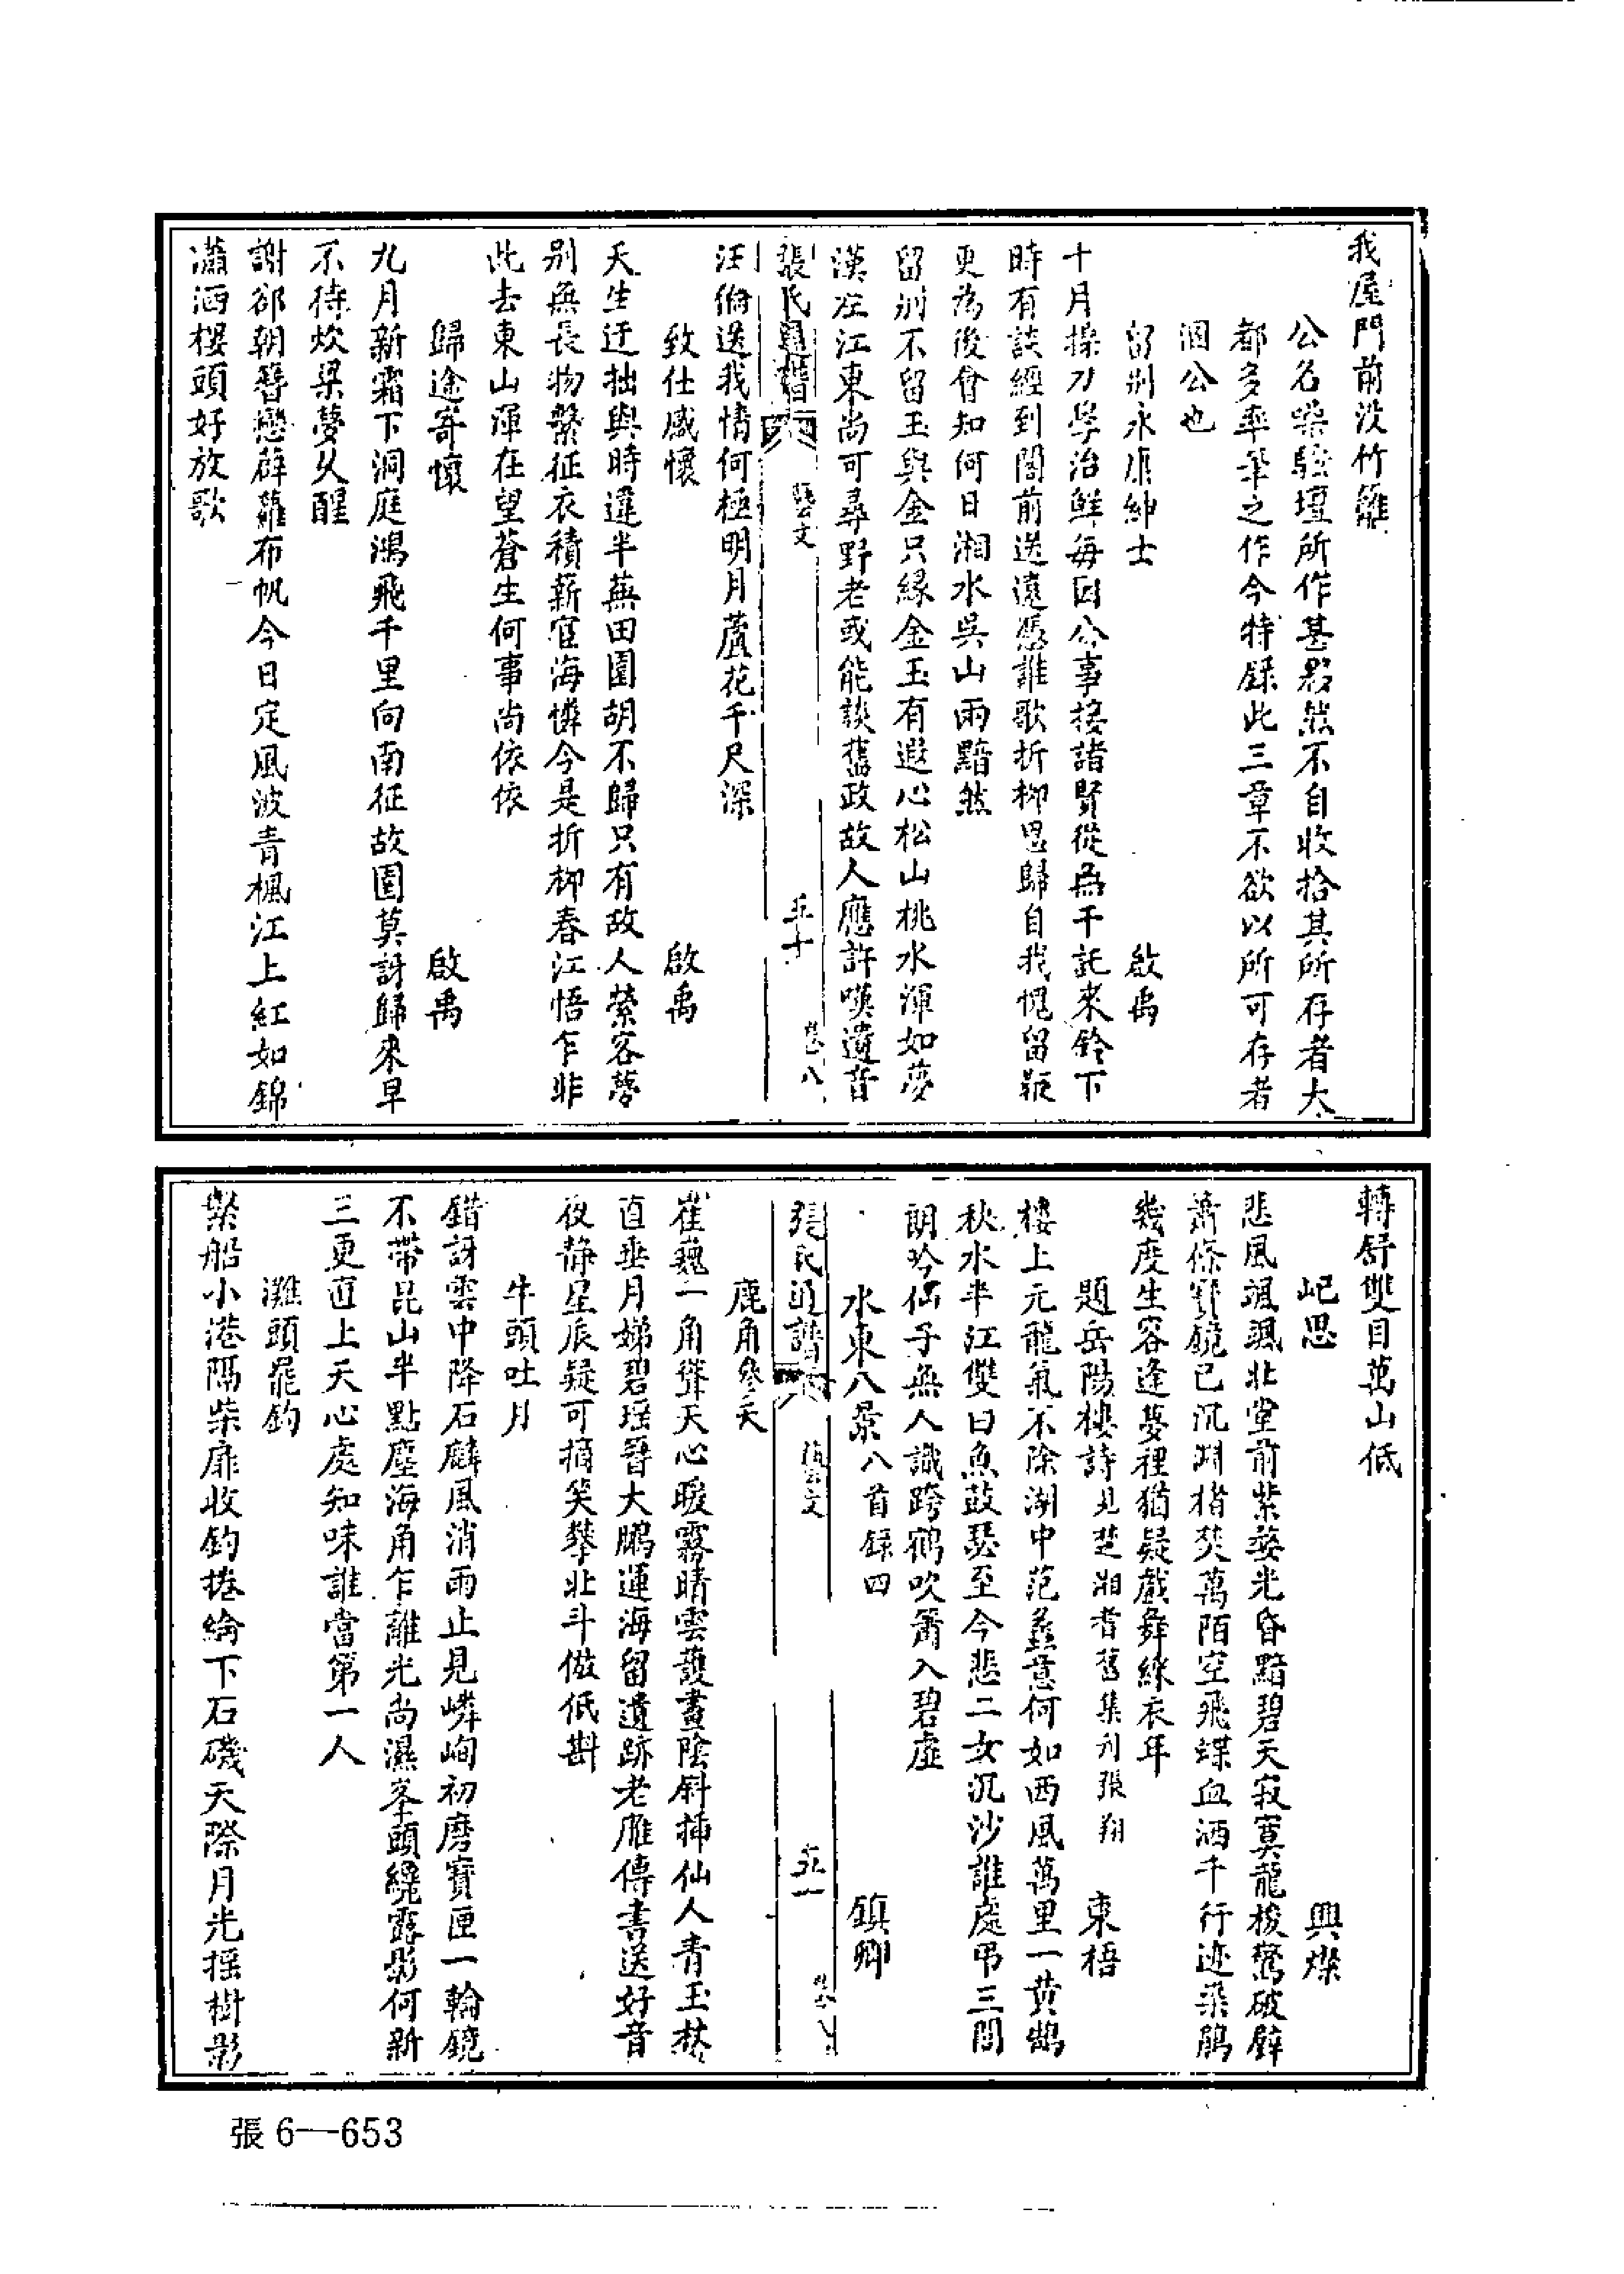 我屋門前没竹籬
公名噪騷壇所作甚夥然不自收拾其所存者大
都多率筆之作今特録此三章不欲以所可存者
溷公也
留别永康紳士　啟禹
十月操刀學治鮮每因公事接諸賢從無干託來鈴下
時有談經到閤前送遠憑誰歌折柳思歸自我愧留鞭
更為後會知何日湘水吳山雨黯然
留别不留玉與金只緣金玉有遐心松山桃水渾如夢
漢左江東尚可尋野老或能談舊政故人應許嘆遺音
汪倫送我情何極明月蘆花千尺深
張氏通譜　藝文　五十　卷八
致仕感懷　啟禹
天生迂拙與時違半蕪田園胡不歸只有故人縈客夢
别無長物繫征衣積薪宦海憐今是折柳春江悟乍非
此去東山渾在望蒼生何事尚依依
歸途寄懷　啟禹
九月新霜下洞庭鴻飛千里向南征故園莫訝歸來早
不待炊粱夢乆醒
謝郤朝簪戀薜蘿布帆今日定風波青楓江上紅如錦
瀟洒樓頭好放歌
轉舒雙目萬山低
屺思　興燦
悲風颯颯北堂前紫婺光昏黯碧天寂寞龍梭驚破壁
蕭條寶鏡已沉淵楮焚萬陌空飛蝶血洒千行迹染鵑
幾度生容逢夢裡猶疑戲舞綵衣年
題岳陽樓詩見楚湘耆舊集刋張翔　東梧
樓上元龍氣不除湖中范蠡意何如西風萬里一黄鵠
秋水半江雙白魚鼓瑟至今悲二女沉沙誰處吊三閭
朗吟仙子無人識跨鶴吹簫入碧虛
水東八景八首録四　鎮卿
張氏通譜　藝文　五一　卷八
鹿角參天
崔巍一角聳天心暖霧晴雲護晝陰斜插仙人青玉
直垂月娣碧瑶簪大鵬運海留遺跡老雁傳書送好音
夜静星辰疑可摘笑攀北斗倣低斟
牛頭吐月
錯訝雲中降石麟風消雨止見嶙峋初磨寳匣一輪鏡
不帶昆山半點塵海角乍離光尚濕峯頭纔露影何新
三更直上天心處知味誰當第一人
灘頭罷釣
繫船小港隔柴扉收釣捲綸下石磯天際月光摇樹影
張6—653